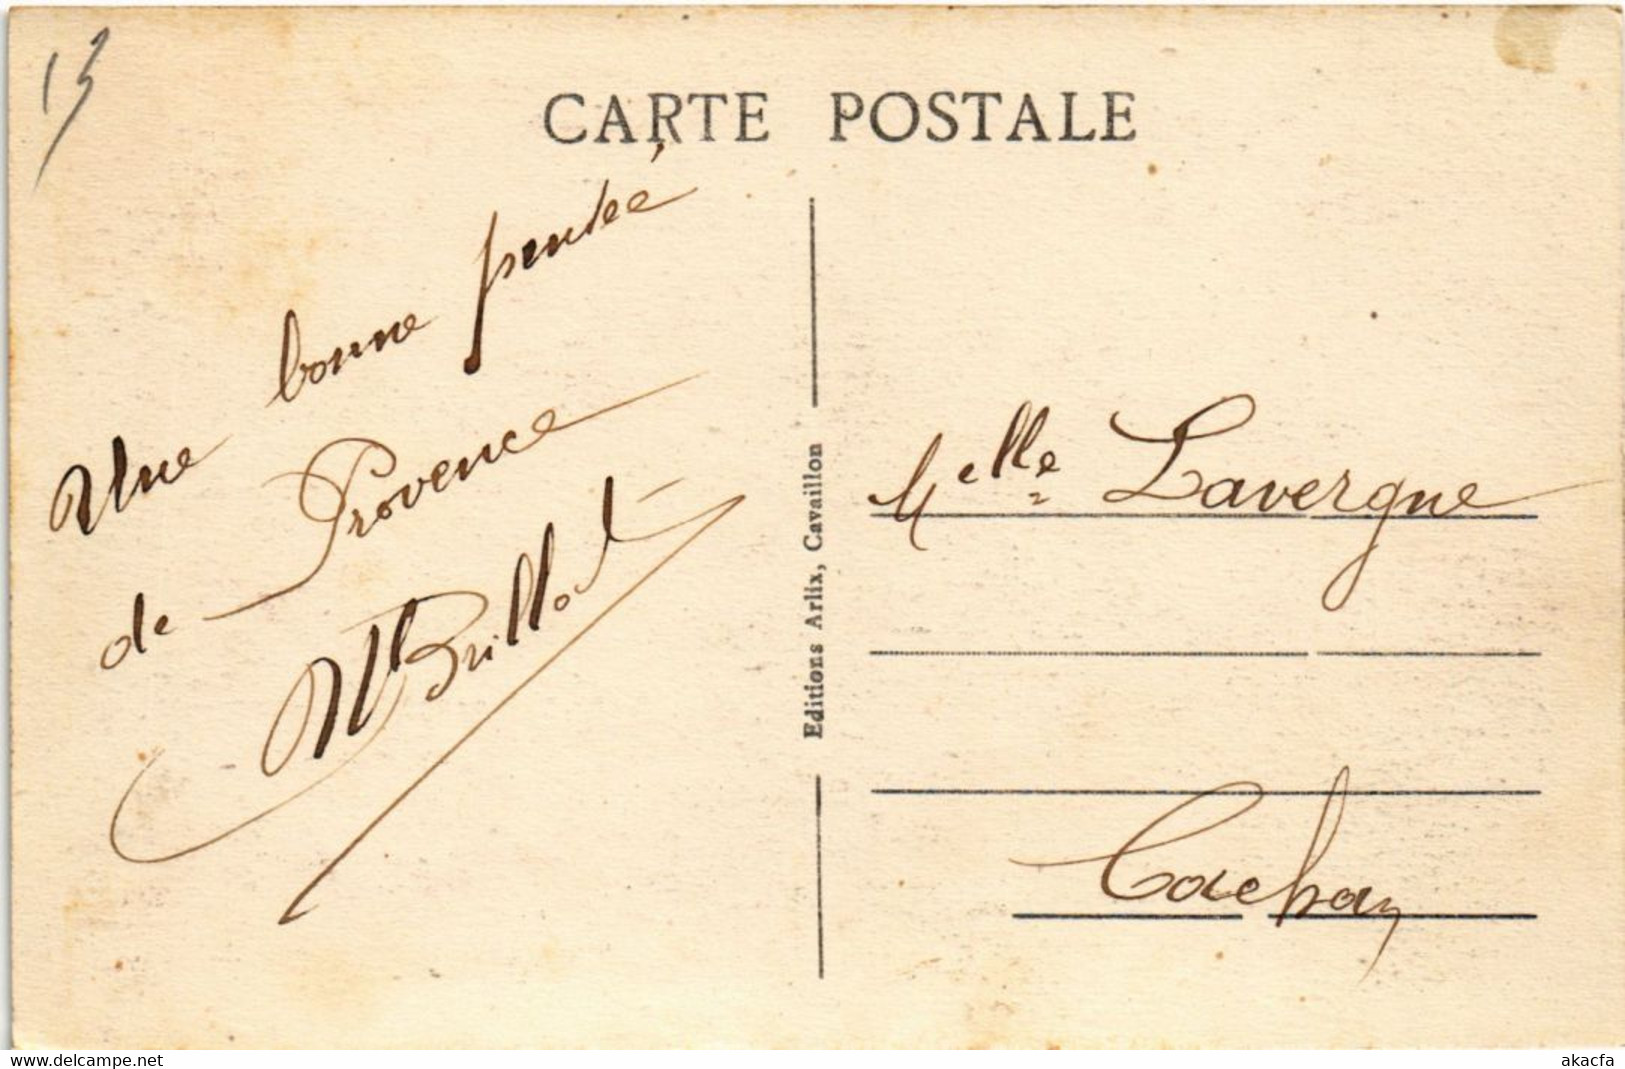 13
CARTE POSTALE
Une bonne pensée
de Provence
MBrillod
Editions Arlix, Cavaillon
Melle Lavergne
Cachan
www.delcampe.net
akacfa